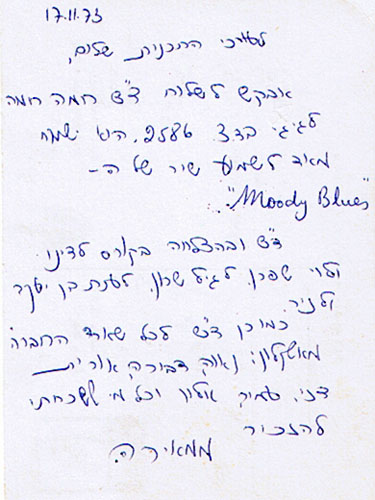 17.11.73
לעורכי התכנית שלום,
אבקש לשלוח ד"ש חמה חמה
לגיגי בד.צ 2586. הוא ישמח
מאוד לשמוע שיר של ה-
"Moody Blues"...
ד"ש ובהצלחה בקורס לדינו
ולוי שפרן. לגיל שרון. לענת בן יעקב
ולניר.
כמו כן ד"ש לכל שאר החברה
מאשקלון: נאוה, דבורה, אורית
דני, שמיק אלון וכל מי ששכחתי
להזכיר
ממאיר ה.